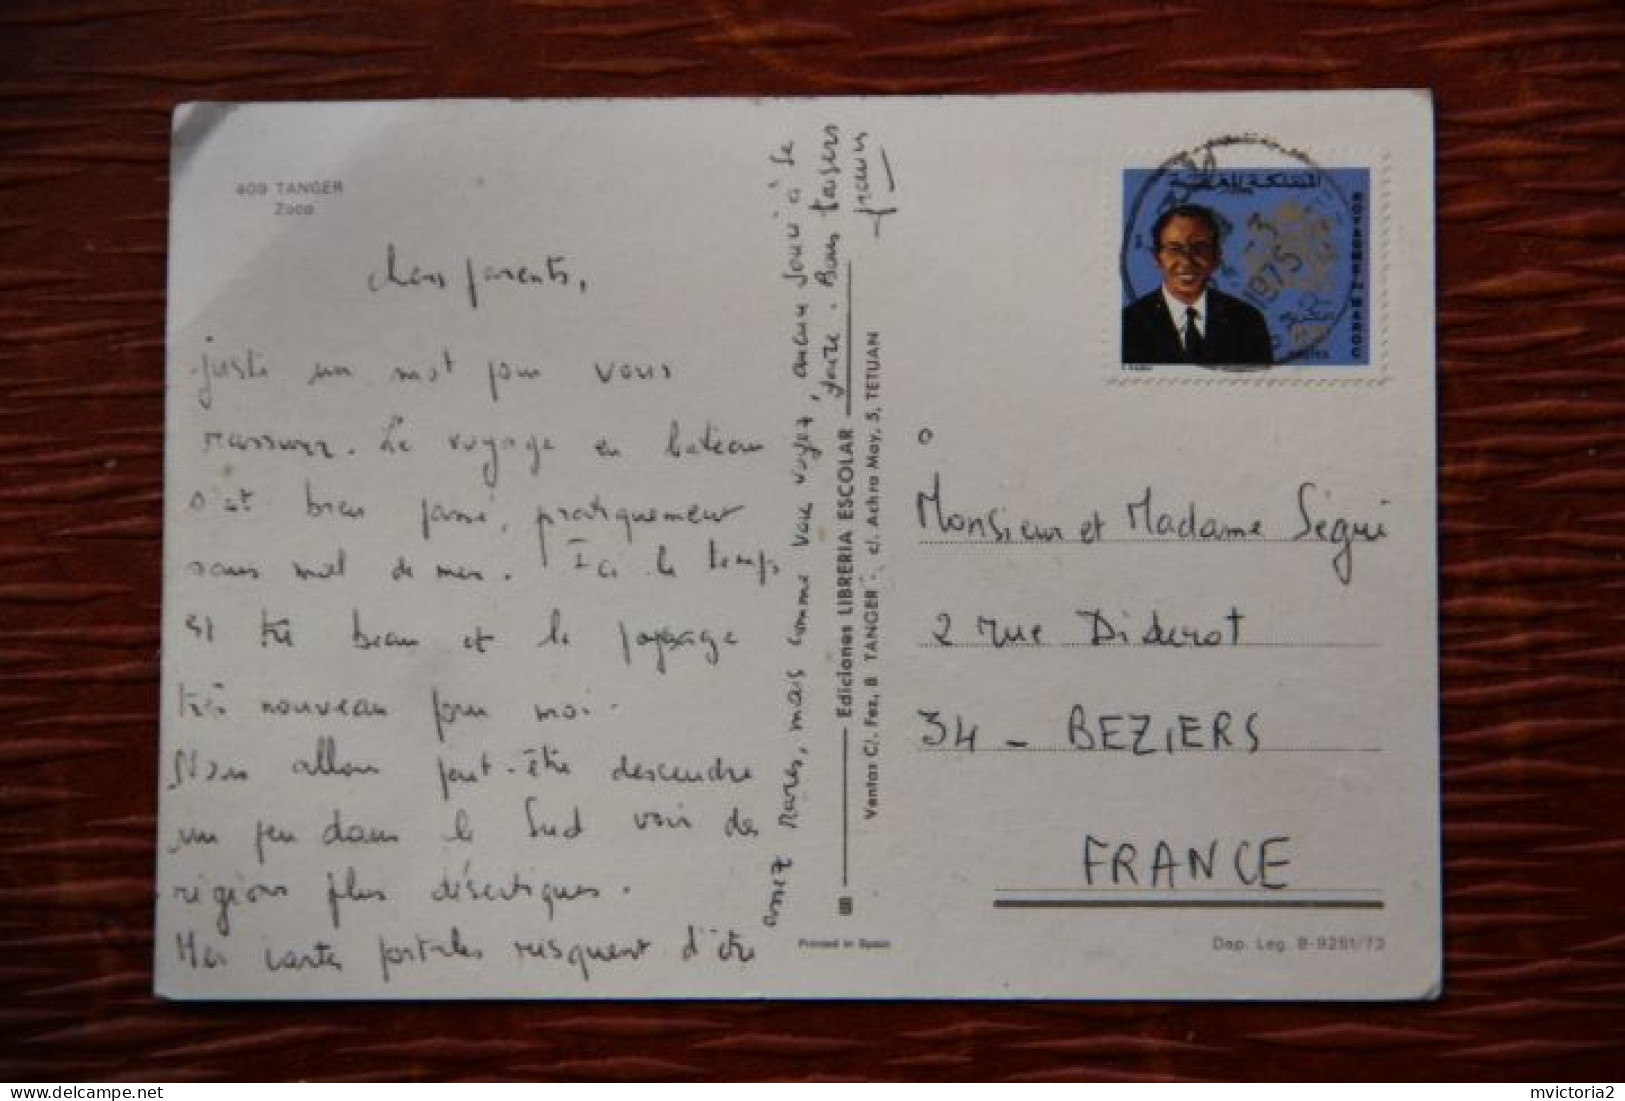 409 TANGER
Zoco
chers parents,
juste un mot pour vous
rassurer. Le voyage en bateau
s'est bien passé, pratiquement
sans mal de mer. Ici le temps
est très beau et le paysage
très nouveau pour moi.
Nous allons peut-être descendre
un peu dans le Sud voir des
régions plus désertiques.
Mes cartes postales risquent d'être
assez rares, mais comme vous voyez, aucun souci à se
faire. Bons baisers
Ediciones LIBRERIA ESCOLAR
Ventas C/. Fez, 8 TANGER - c/. Achra May, 5, TETUAN
Printed in Spain
المملكة المغربية
ROYAUME DU MAROC
POSTES
1975
Monsieur et Madame Ségui
2 rue Diderot
34 - BEZIERS
FRANCE
Dep. Leg. B-9251/73
mvictoria2